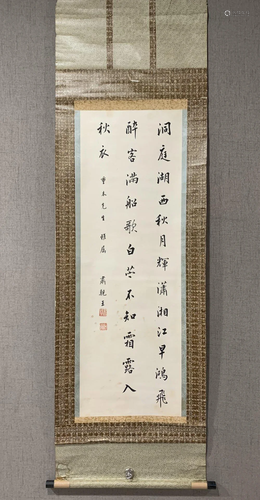 洞庭湖西秋月輝瀟湘江早鴻飛
醉客滿船歌白苧不知霜露入
秋衣
雅屬
肅親王